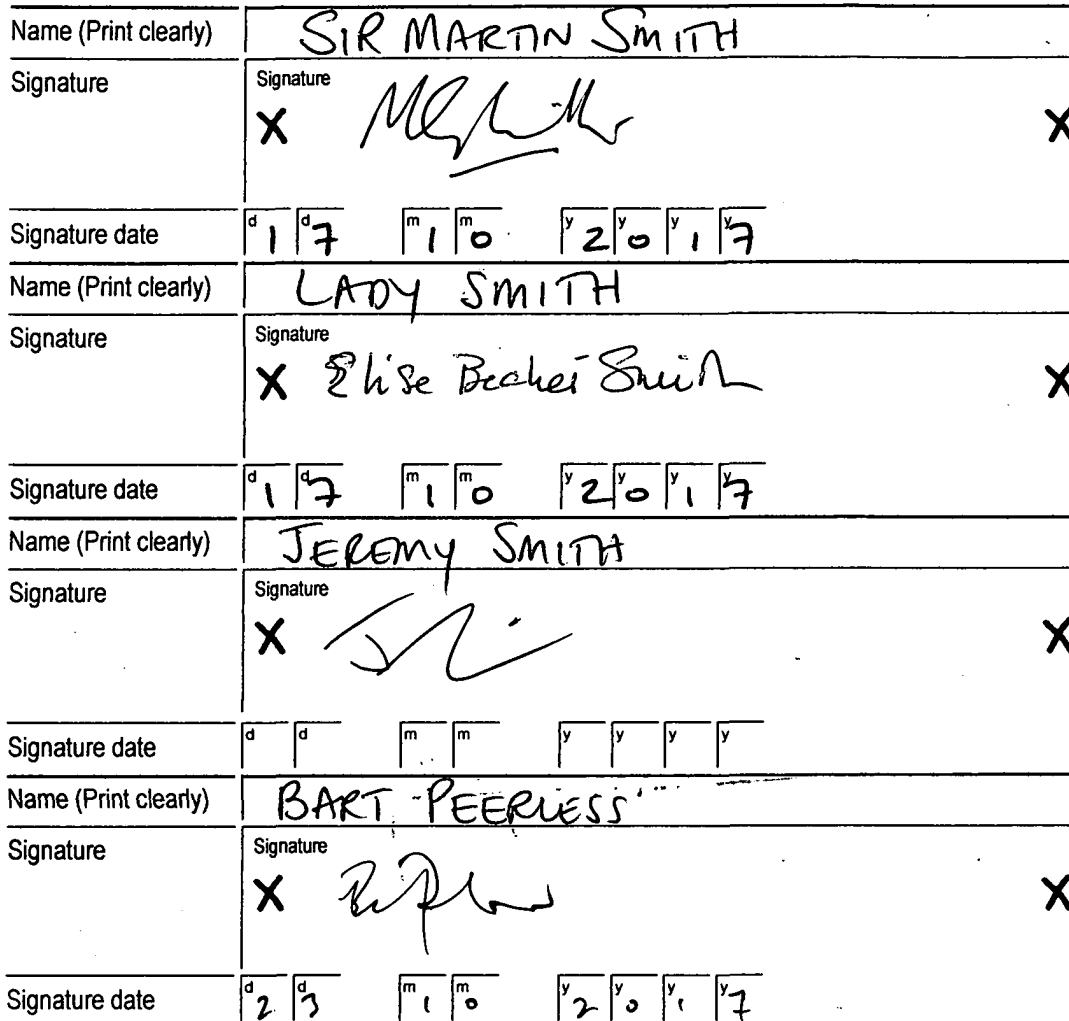 Name (Print clearly) SIR MARTIN SMITH
Signature Signature
X X
Signature date d1 d7 m1 m0 y2 y0 y1 y7
Name (Print clearly) LADY SMITH
Signature Signature
X Elise Becket Smith X
Signature date d1 d7 m1 m0 y2 y0 y1 y7
Name (Print clearly) JEREMY SMITH
Signature Signature
X X
Signature date d d m m y y y y
Name (Print clearly) BART PEERLESS
Signature Signature
X X
Signature date d2 d3 m1 m0 y2 y0 y1 y7